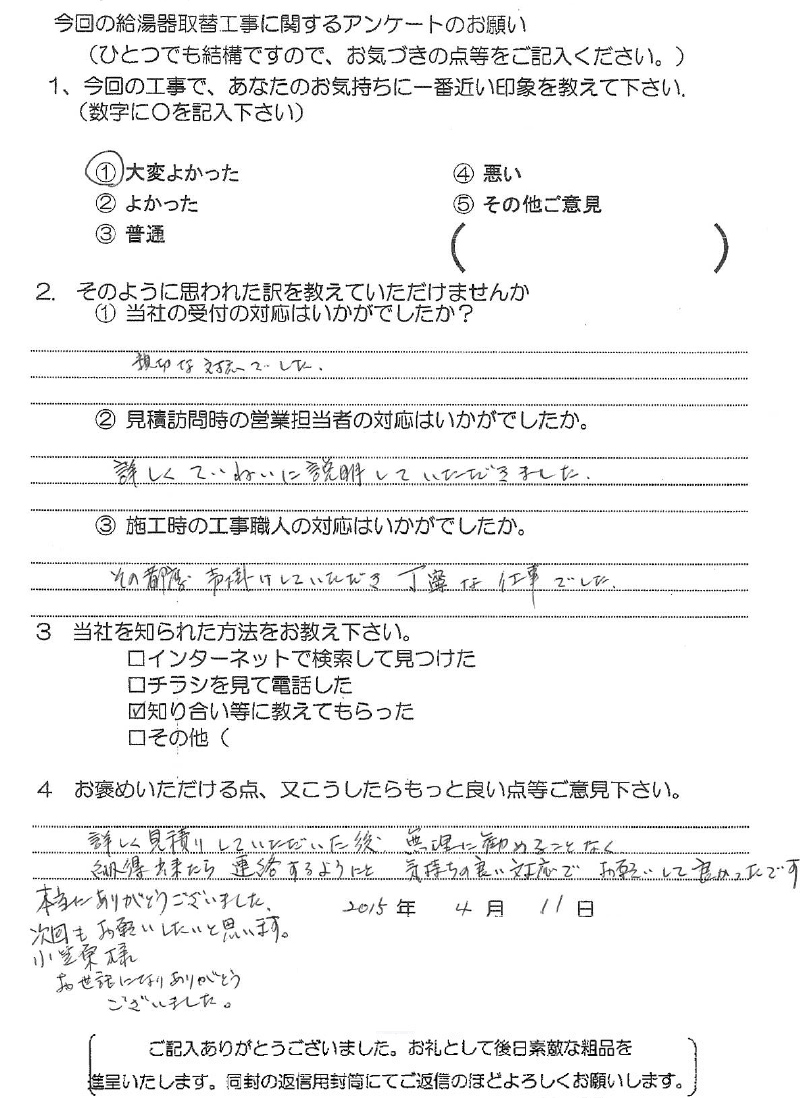 今回の給湯器取替工事に関するアンケートのお願い
（ひとつでも結構ですので、お気づきの点等をご記入ください。）
1、今回の工事で、あなたのお気持ちに一番近い印象を教えて下さい.
（数字に〇を記入下さい）
① 大変よかった
② よかった
③ 普通
④ 悪い
⑤ その他ご意見
（ ）
2． そのように思われた訳を教えていただけませんか
① 当社の受付の対応はいかがでしたか？
親切な対応でした.
② 見積訪問時の営業担当者の対応はいかがでしたか。
詳しくていねいに説明していただきました.
③ 施工時の工事職人の対応はいかがでしたか。
その都度 声掛けしていただき 丁寧な仕事でした.
3 当社を知られた方法をお教え下さい。
□インターネットで検索して見つけた
□チラシを見て電話した
☑知り合い等に教えてもらった
□その他（
4 お褒めいただける点、又こうしたらもっと良い点等ご意見下さい。
詳しく見積りしていただいた後 無理に勧めることなく
納得出来たら 連絡するようにと 気持ちの良い対応で お願いして良かったです
本当にありがとうございました.
2015 年 4 月 11 日
次回も お願いしたいと思います。
小笠原様
お世話になりありがとう
ございました。
ご記入ありがとうございました。お礼として後日素敵な粗品を
進呈いたします。同封の返信用封筒にてご返信のほどよろしくお願いします。